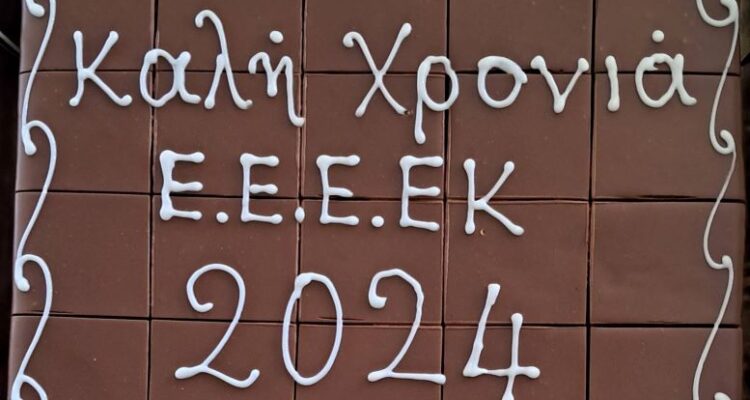 Καλή Χρονιά
Ε.Ε.Ε.ΕΚ
2024